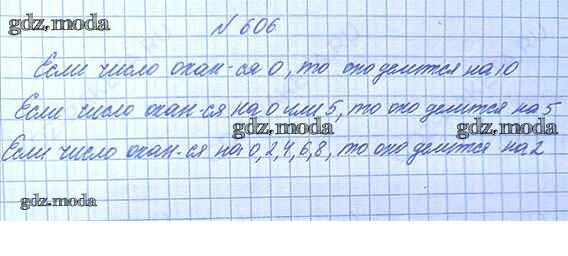 gdz.moda
N 606
gdz.moda
Если число окан-ся 0, то оно делится на 10
Если число окан-ся на 0 или 5, то оно делится на 5
gdz.moda
gdz.moda
Если число окан-ся на 0, 2, 4, 6, 8, то оно делится на 2
gdz.moda
gdz.moda